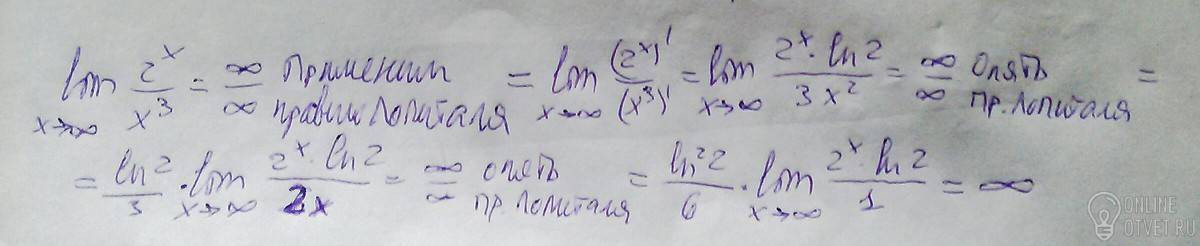 lim x→∞ 2^x / x^3 = ∞/∞ Применим правило Лопиталя = lim x→∞ (2^x)' / (x^3)' = lim x→∞ 2^x · ln 2 / 3x^2 = ∞/∞ опять пр. Лопиталя =
= ln 2 / 3 · lim x→∞ 2^x · ln 2 / 2x = ∞/∞ опять пр. Лопиталя = ln^2 2 / 6 · lim x→∞ 2^x · ln 2 / 1 = ∞
ONLINE
OTVET.RU